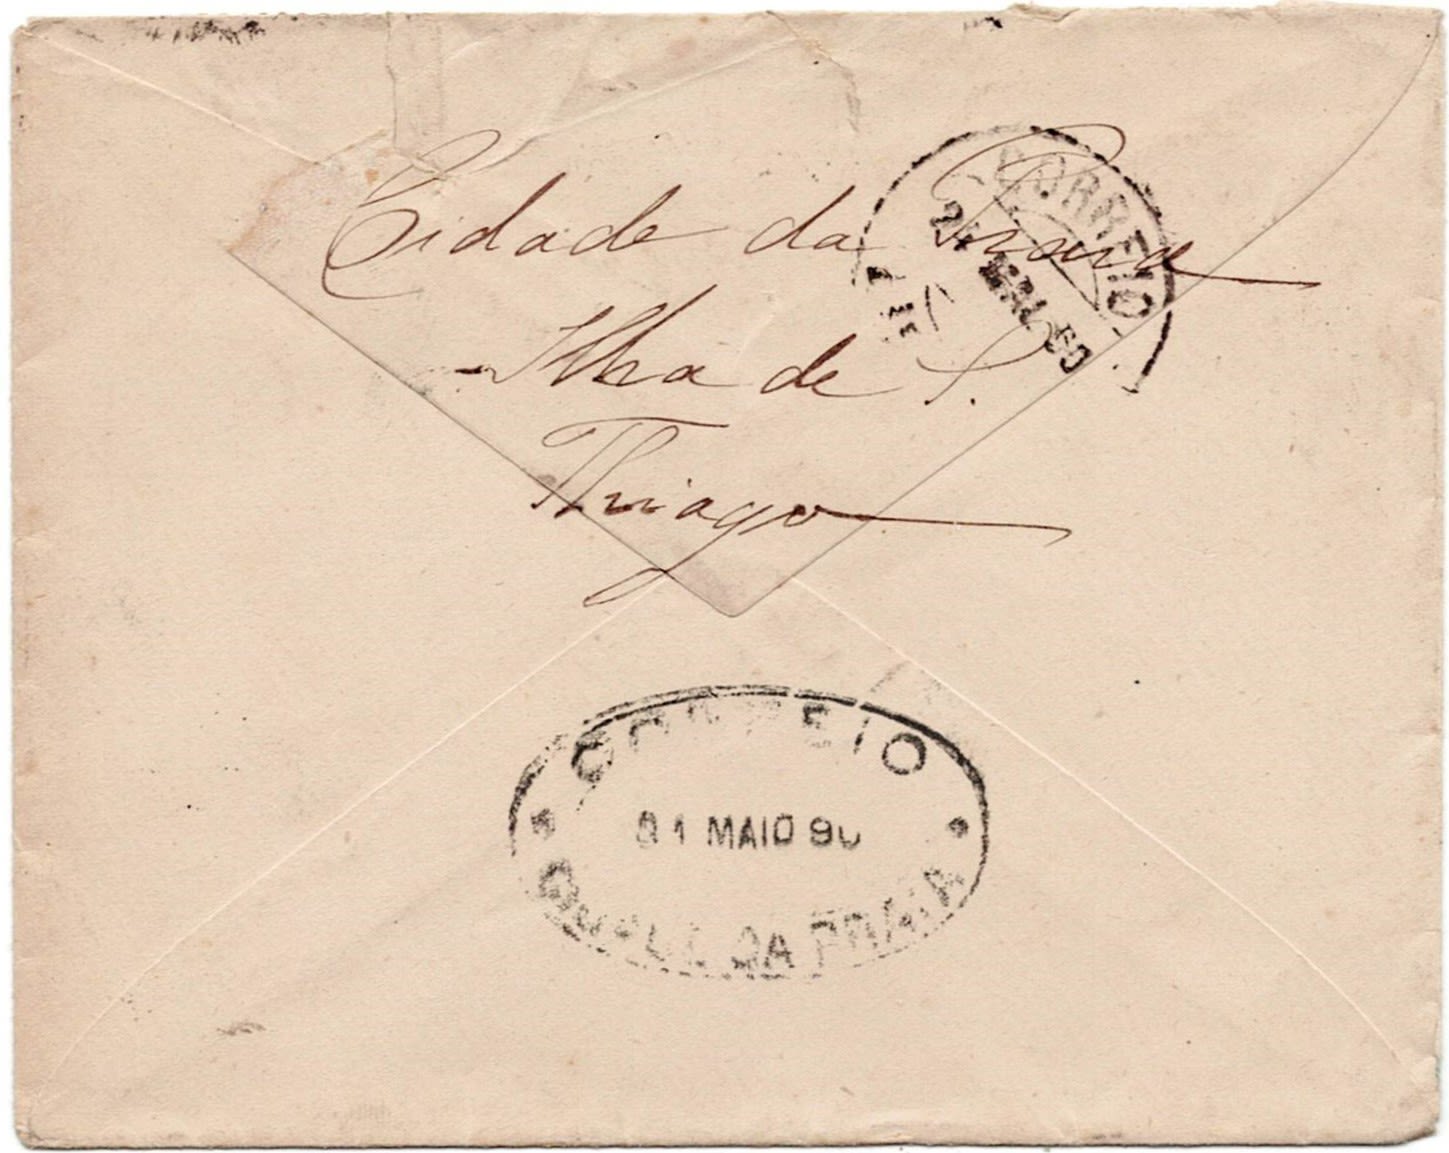 Cidade da Praia
Ilha de S.
Thiago
CORREIO
ABRIL 90
CORREIO
31 MAIO 90
DA PRAIA